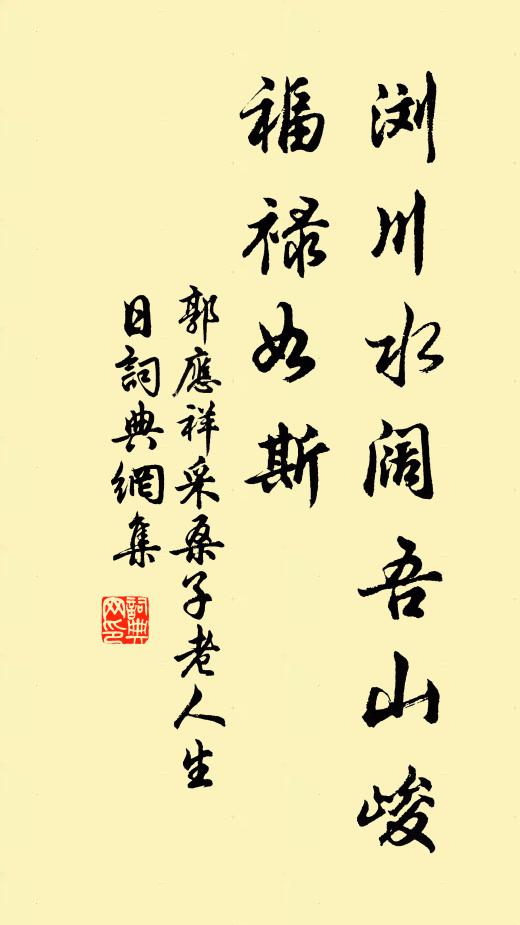 浏川水阔吾山峻
福禄如斯
郭應祥采桑子老人生
日詞典網集
詞典
网印